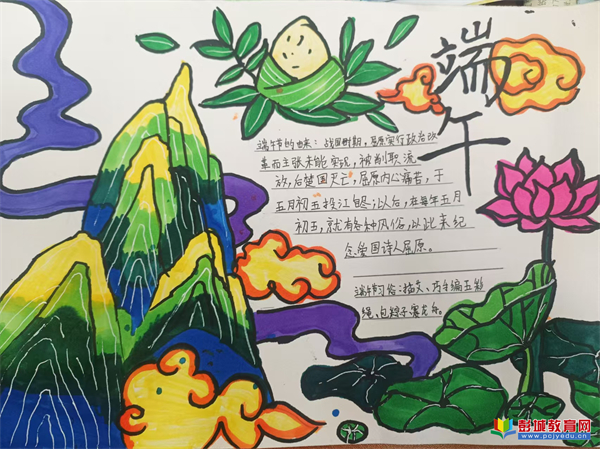 端午
端午节的由来：战国时期，屈原实行政治改
革而主张未能实现，被削职流
放，后楚国灭亡，屈原内心痛苦，于
五月初五投江自尽，以后，在每年五月
初五，就有各种风俗，以此来纪
念爱国诗人屈原。
端午节习俗：插艾、巧手编五彩
绳、包粽子赛龙舟。
彭城教育网
www.pcjyedu.cn